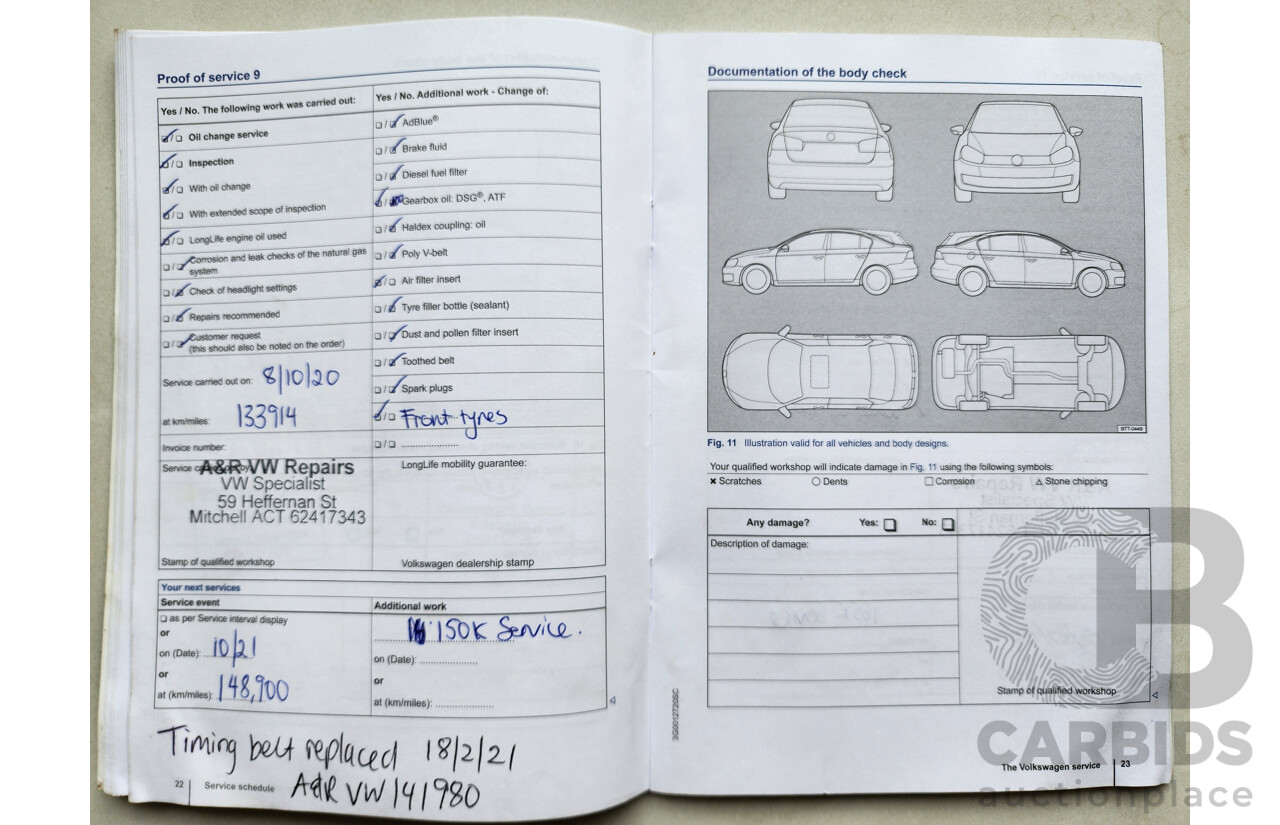 Proof of service 9
Yes / No. The following work was carried out:
☑/☐ Oil change service
☑/☐ Inspection
☑/☐ With oil change
☑/☐ With extended scope of inspection
☑/☐ LongLife engine oil used
☐/☑ Corrosion and leak checks of the natural gas
system
☐/☑ Check of headlight settings
☐/☑ Repairs recommended
☐/☑ Customer request
(this should also be noted on the order)
Service carried out on: 8/10/20
at km/miles: 133914
Invoice number:
A&R VW Repairs
VW Specialist
59 Heffernan St
Mitchell ACT 62417343
Stamp of qualified workshop
Yes / No. Additional work - Change of:
☐/☑ AdBlue®
☐/☑ Brake fluid
☐/☑ Diesel fuel filter
☑/☐ Gearbox oil: DSG®, ATF
☐/☑ Haldex coupling: oil
☐/☑ Poly V-belt
☑/☐ Air filter insert
☐/☑ Tyre filler bottle (sealant)
☐/☑ Dust and pollen filter insert
☐/☑ Toothed belt
☐/☑ Spark plugs
☑/☐ Front tyres
☐/☐ ....................
LongLife mobility guarantee:
Volkswagen dealership stamp
Your next services
Service event
☐ as per Service interval display
or
on (Date): 10/21
or
at (km/miles): 148,900
Additional work
150K Service.
on (Date): ....................
or
at (km/miles): ....................
Timing belt replaced 18/2/21
A&R VW 141980
22 Service schedule
Documentation of the body check
BTT-0448
Fig. 11 Illustration valid for all vehicles and body designs.
Your qualified workshop will indicate damage in Fig. 11 using the following symbols:
✖ Scratches ○ Dents □ Corrosion △ Stone chipping
Any damage? Yes: ☐ No: ☐
Description of damage:
Stamp of qualified workshop
3G0012720SC
The Volkswagen service 23
CB
CARBIDS
auctionplace